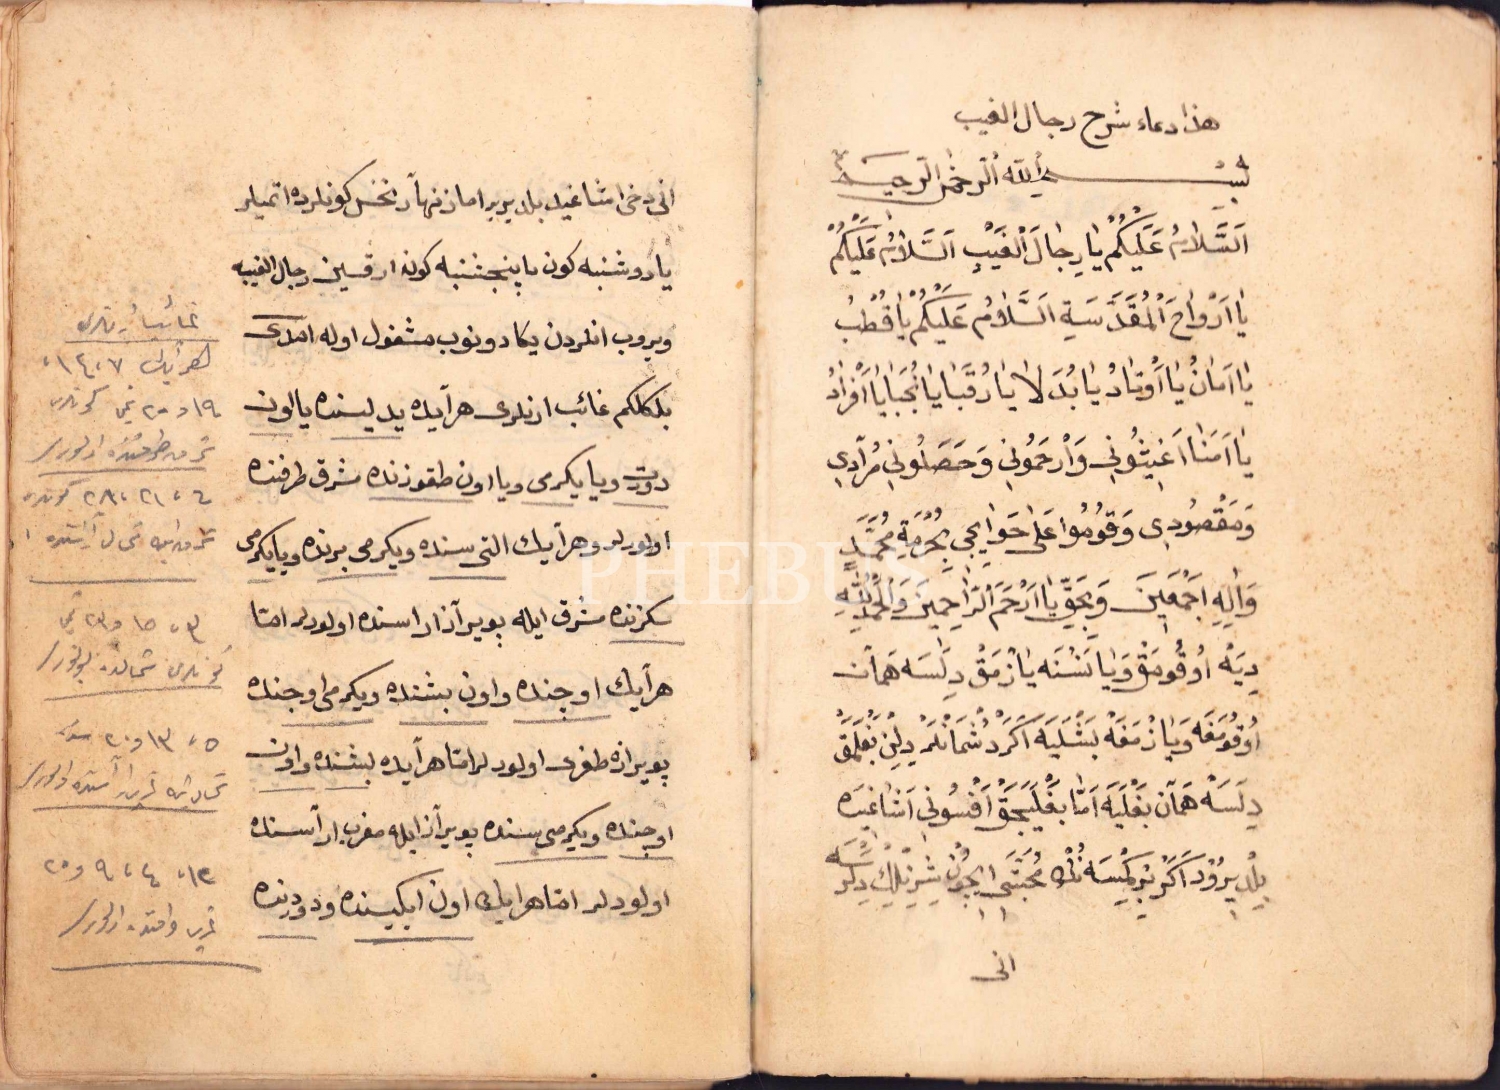 هذا دعاء شرح رجال الغيب
بسم الله الرحمن الرحيم
اَلسَّلَامُ عَلَيْكُمْ يَا رِجَالَ الْغَيْبِ اَلسَّلَامُ عَلَيْكُمْ
يَا اَرْوَاحَ الْمُقَدَّسَةِ اَلسَّلَامُ عَلَيْكُمْ يَا قُطْبُ
يَا اَمَانُ يَا اَوْتَادُ يَا بُدَلَا يَا رُقَبَا يَا نُجَبَا يَا اَفْرَادُ
يَا اَمَنَا اَغِيثُونِي وَارْحَمُونِي وَحَصِّلُونِي مُرَادِي
وَمَقْصُودِي وَقُومُوا عَلَى حَوَايِجِي بِحُرْمَةِ مُحَمَّدٍ
وَاٰلِهِ اَجْمَعِينَ وَبِحَقِّ يَا اَرْحَمَ الرَّاحِمِينَ وَالْحَمْدُ لِلّٰهِ
دِيَه اُوقُومَقْ وَيَا نَسْنَه يَازْمَقْ دِلَسَه هَمَان
اُوقُومَغَه وَيَازْمَغَه بَشْلَيَه اَكَرْ دُشْمَانْلَرْ دِلِنْ بَغْلَمَقْ
دِلَسَه هَمَان بَغْلَيَه اَمَّا بَغْلَيَجَقْ اَفْسُونِي اَشَاغِيدَه
بِلْدِيرُرْ اَكَرْ بِرْ كِمْسَه نُكْ مُحَبَّتِي اِيچُونْ شِيرِينْلِكْ دِلَرْسَه
انى
انى دخى اشاغيده بلديرير اما زنهار نحس كونلرده اتميلر
يا دوشنبه كون يا پنجشنبه كون ارقسين رجال الغيبه
ويروب انلردن يكا دونوب مشغول اوله امدى
بلكلكم غائب ارنلرى هر آيده يديسنده يا اون
دورت ويا يكرمى ويا اون طقوزنده مشرق طرفنده
اولورلر وهر آيك التى سنده ويكرمى برنده ويا يكرمى
سكزنده مشرق ايله پويراز اراسنده اولورلر امتا
هر آيك اوچنده واون بشنده ويكرمى اوچنده
پويرازه طغرى اولورلر امتا هر آيده بشنده واون
اوچنده ويكرمى سنده پويراز ايله مغرب اراسنده
اولورلر امتا هر ايك اون ايكيسنده ودوردنده
غائب ارنلرى
هر آيك ٧، ١٤،
١٩ و ٢٠ نجى كونلرى
شرق طرفنده اولورلر
٦، ٢١، ٢٨ كونلرى
٣، ١٥ و ٢٣ نجى
كونلرى شمالده بولنورلر
٥، ١٣ و ٢٠ سنده
١٢، ٤، ٩ و ٢٥